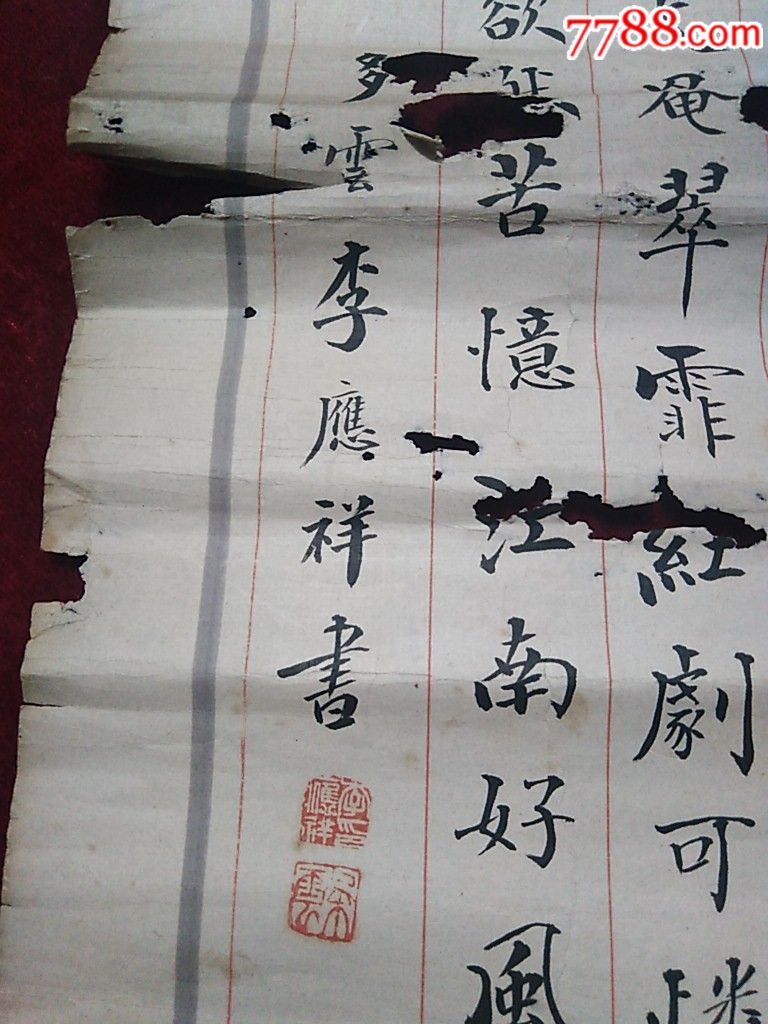 7788.com
淹翠霏紅劇可
欲愁苦憶江南好風
多雲李應祥書
李應祥印